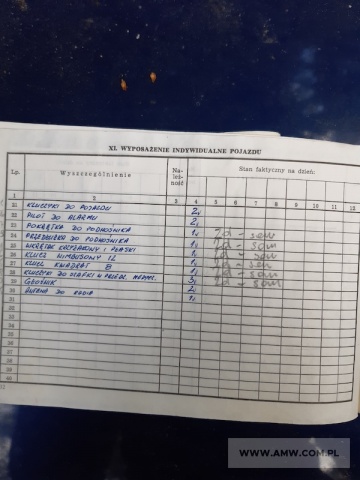 XI. WYPOSAŻENIE INDYWIDUALNE POJAZDU
Lp. Wyszczególnienie Na-leż-ność Stan faktyczny na dzień:
1 2 3 4 5 6 7 8 9 10 11 12
21 KLUCZYKI DO POJAZDU 2
22 PILOT DO ALARMU 2
23 POKRĘTKA DO PODNOŚNIKA 1
24 PRZEDŁUŻKA DO PODNOŚNIKA 1
25 WKRĘTAK KRZYŻAKOWY I PŁASKI 1
26 KLUCZ IMBUSOWY 12 1
27 KLUCZ KWADRAT 8 1
28 KLUCZYKI DO SZAFKI 3
29 GŁOŚNIK 2
30 ANTENA DO RADIA 1
31
32
33
34
35
36
37
38
39
40
WWW.AMW.COM.PL